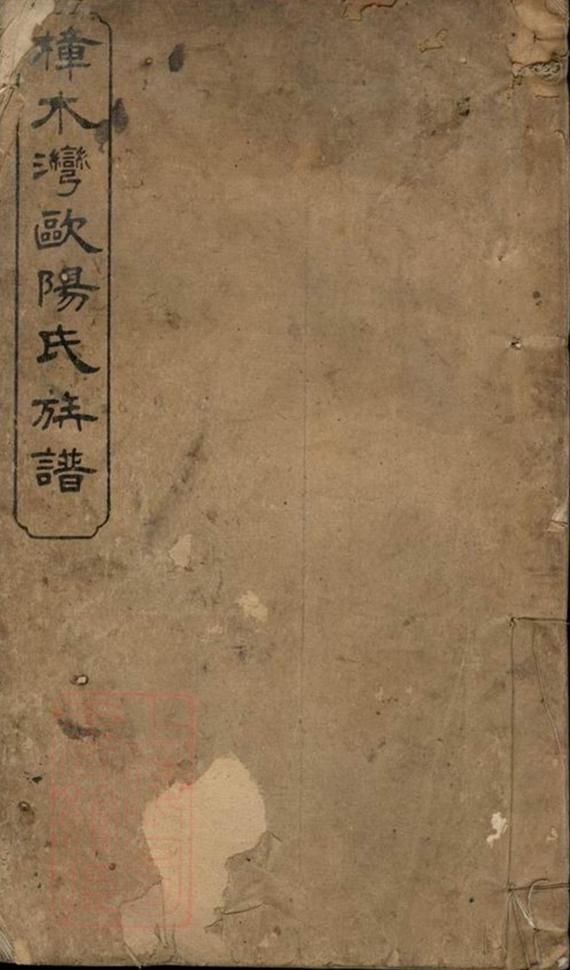 樟木灣歐陽氏族譜